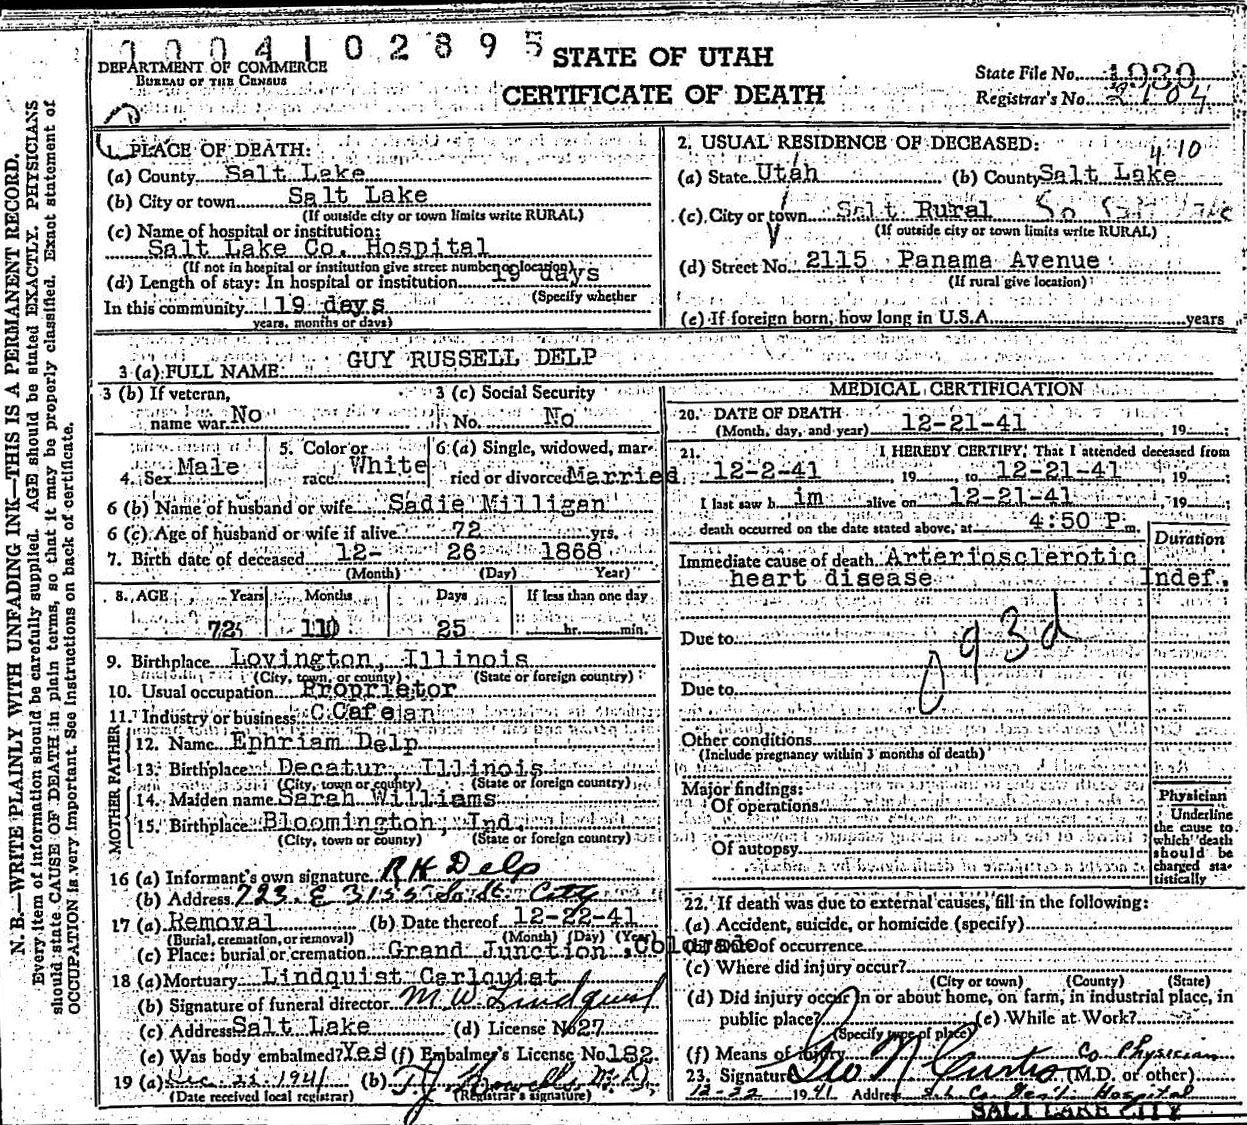 0004102895
STATE OF UTAH
DEPARTMENT OF COMMERCE
BUREAU OF THE CENSUS
CERTIFICATE OF DEATH
State File No. 1939
Registrar's No. 2104
N. B.—WRITE PLAINLY WITH UNFADING INK—THIS IS A PERMANENT RECORD.
Every item of information should be carefully supplied. AGE should be stated EXACTLY. PHYSICIANS
should state CAUSE OF DEATH in plain terms, so that it may be properly classified. Exact statement of
OCCUPATION is very important. See instructions on back of certificate.
1. PLACE OF DEATH:
(a) County Salt Lake
(b) City or town Salt Lake
(If outside city or town limits write RURAL)
(c) Name of hospital or institution:
Salt Lake Co. Hospital
(If not in hospital or institution give street number or location)
(d) Length of stay: In hospital or institution 19 days
(Specify whether
In this community 19 days
years, months or days)
2. USUAL RESIDENCE OF DECEASED:
4 10
(a) State Utah (b) County Salt Lake
(c) City or town Salt Rural So Salt Lake
(If outside city or town limits write RURAL)
(d) Street No. 2115 Panama Avenue
(If rural give location)
(e) If foreign born, how long in U.S.A. years
3 (a) FULL NAME: GUY RUSSELL DELP
3 (b) If veteran,
name war No
3 (c) Social Security
No. No
4. Sex Male
5. Color or
race White
6 (a) Single, widowed, mar-
ried or divorced Married
6 (b) Name of husband or wife Sadie Milligan
6 (c) Age of husband or wife if alive 72 yrs.
7. Birth date of deceased 12- 26 1868
(Month) (Day) Year)
8. AGE Years Months Days If less than one day
72 11 25 hr. min.
9. Birthplace Lovington, Illinois
(City, town, or county) (State or foreign country)
10. Usual occupation Proprietor
11. Industry or business Cafe
FATHER
12. Name Ephriam Delp
13. Birthplace Decatur Illinois
(City, town or county) (State or foreign country)
MOTHER
14. Maiden name Sarah Williams
15. Birthplace Bloomington, Ind.
(City, town or county) (State or foreign country)
16 (a) Informant's own signature R K Delp
(b) Address 723 E 3155 So St. City
17 (a) Removal (b) Date thereof 12-22-41
(Burial, cremation, or removal) (Month) (Day) (Year)
(c) Place: burial or cremation Grand Junction, Colorado
18 (a) Mortuary Lindquist Carlquist
(b) Signature of funeral director M. W. Lindquist
(c) Address Salt Lake (d) License No 27
(e) Was body embalmed? Yes (f) Embalmer's License No. 182.
19 (a) Dec. 22 1941 (b) T. J. Howells, M. D.
(Date received local registrar) (Registrar's signature)
MEDICAL CERTIFICATION
20. DATE OF DEATH
(Month, day, and year) 12-21-41, 19 ;
21. I HEREBY CERTIFY, That I attended deceased from
12-2-41 19 , to 12-21-41, 19 ;
I last saw h im alive on 12-21-41, 19 ;
death occurred on the date stated above, at 4:50 P m.
Duration
Immediate cause of death Arteriosclerotic
heart disease Indef.
93d
Due to
Due to
Other conditions
(Include pregnancy within 3 months of death)
Major findings:
Of operations
Of autopsy
Physician
Underline
the cause to
which death
should be
charged sta-
tistically
22. If death was due to external causes, fill in the following:
(a) Accident, suicide, or homicide (specify)
(b) Date of occurrence
(c) Where did injury occur?
(City or town) (County) (State)
(d) Did injury occur in or about home, on farm, in industrial place, in
public place? (e) While at Work?
(Specify type of place)
(f) Means of injury Co Physician
23. Signature Geo N Curtis (M.D. or other)
12-22 1941 Address S. L. Co. Gen'l. Hospital
SALT LAKE CITY